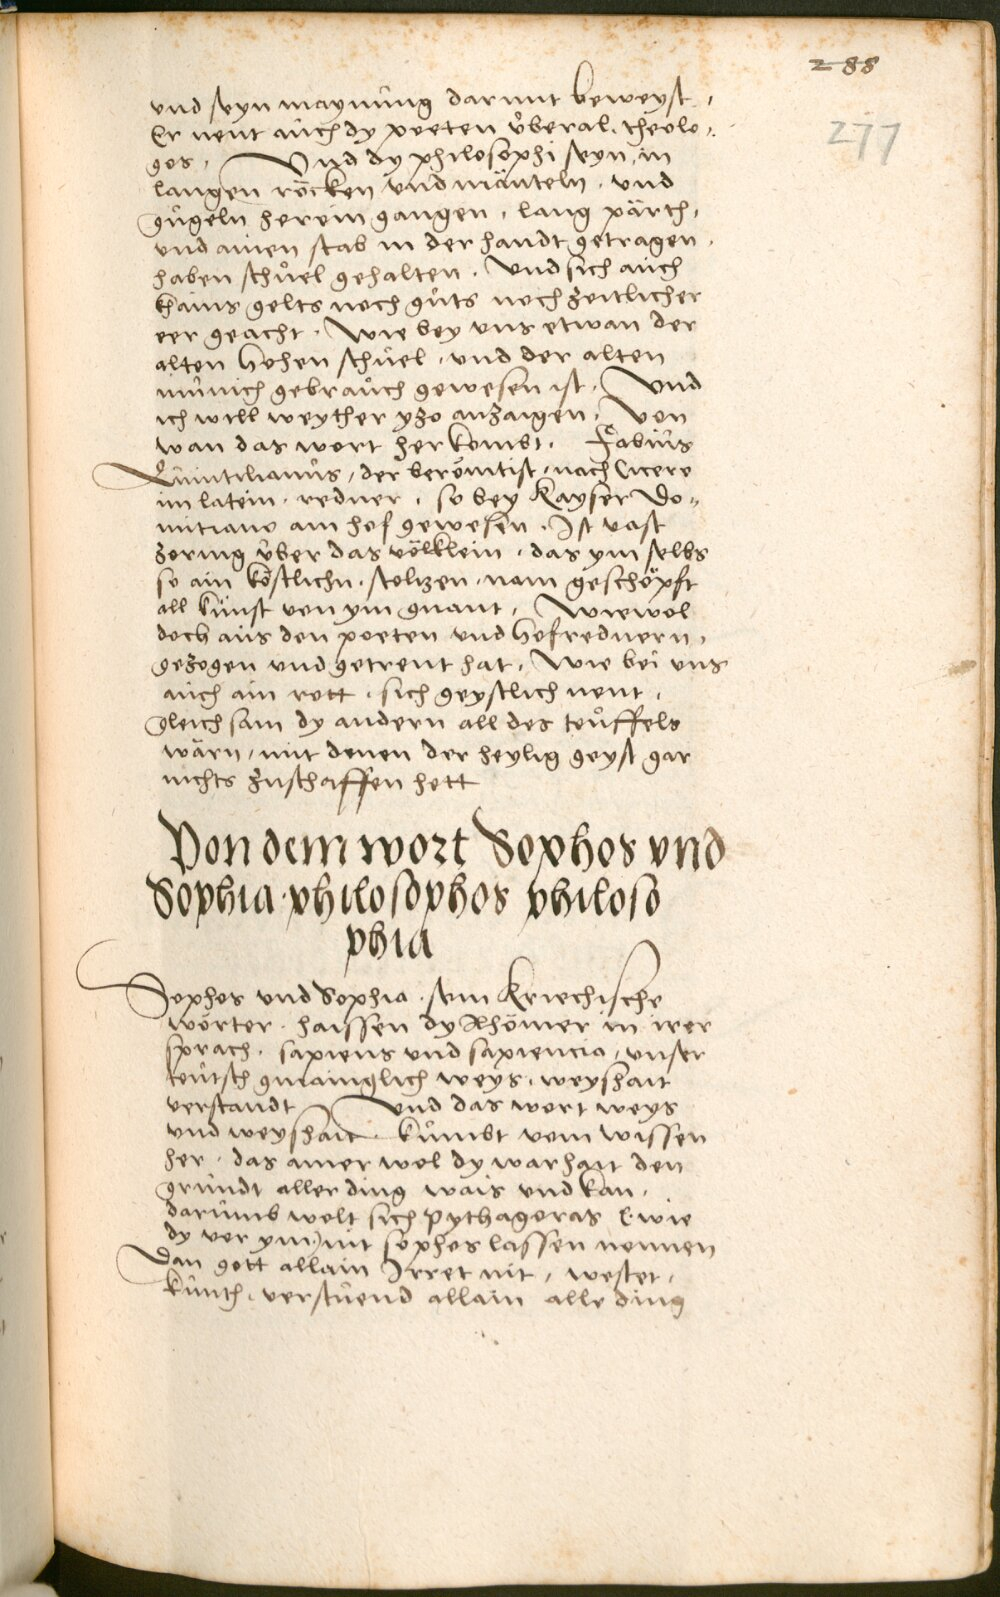 288
277
und seyn maynung darmit beweyst,
Er nent auch dy poeten überal, theolo⸗
gos, Und dy philosophi seyn in
langen röcken und mänteln, und
gugeln herein gangen, lang pärth,
und ainen stab in der handt getragen,
haben schuel gehalten. Und sich auch
khains gelts noch guts noch zeitlicher
eer geacht. Wie bey uns etwan der
alten hohen schuel, und der alten
münich gebrauch gewesen ist. Und
ich will weyther yzo anzaigen, Von
wan das wort her kombt. Fabius
Quintilianus, der berömtist, nach Cicero
im latein, redner, so bey Kayser Do⸗
mitiano am hof gewesen, Ist vast
zornig über das völklein, das ym selbs
so ain köstlichn, stoltzen, nam geschöpft
all kunst von ym gnant, Wiewol
doch aus den poeten und hofrednern,
gezogen und getrent hat, Wie bei uns
auch ain rott, sich geystlich nent,
gleich sam dy andern all des teuffels
wärn, mit denen der heylig geyst gar
nichts zuschaffen hett
Von dem wort Sophos und
Sophia philosophos philoso
phia
Sophos und Sophia, sein Kriechische
wörter, haissen dy Rhömer in irer
sprach, sapiens und sapiencia, unser
teutsch gmainglich weys, weyshait
verstandt Und das wort weys
und weyshait, kumbt vom wissen
her, das ainer wol dy warhait den
grundt aller ding wais und kan,
darumb wolt sich Pythagoras (wie
dy vor ym) nit sophos lassen nennen
Dan gott allain Irret nit, westet,
kunth, verstuend allain alle ding